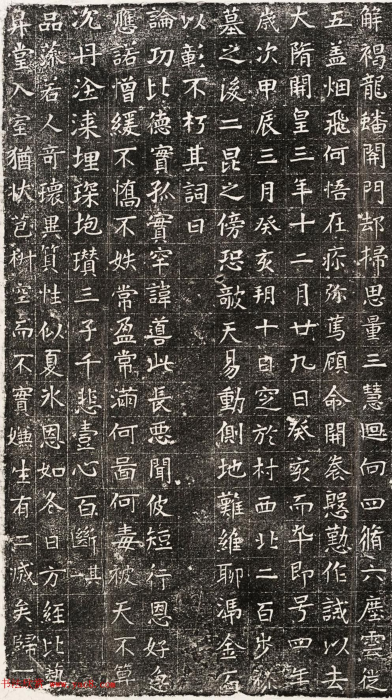 解褐龍蟠開門却掃思量三慧迴向四脩六塵雲従
五盖烟飛何悟在疹弥篤顧命開捲慇懃作誡以去
大隋開皇三年十二月廿九日癸亥而卒即号四年
歳次甲辰三月癸亥朔十日窆於村西北二百步
墓之後二昆之傍恐歌天易動側地難維聊馮金石
以彰不朽其詞曰
論功比德實孤實罕諱善此長惡聞彼短行恩好
應諾憎緩不憍不姎常盈常滿何啚何毒被天不筭
沉丹淦湅埋琛垉瓚三子千悲壹心百斷其一
品藻若人奇瓌異質性似夏氷恩如冬日方經比
昇堂入室猶状苞樹空而不實嫌生有二滅矣歸